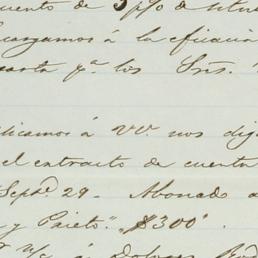 cuento de 3 p/o de
cargamos á la eficacia
carta pª los Sñs.
licamos á VV. nos dig
el extracto de cuenta
Septe 29. Abonado a
y Prieto" "$300".
á Dolores Rod